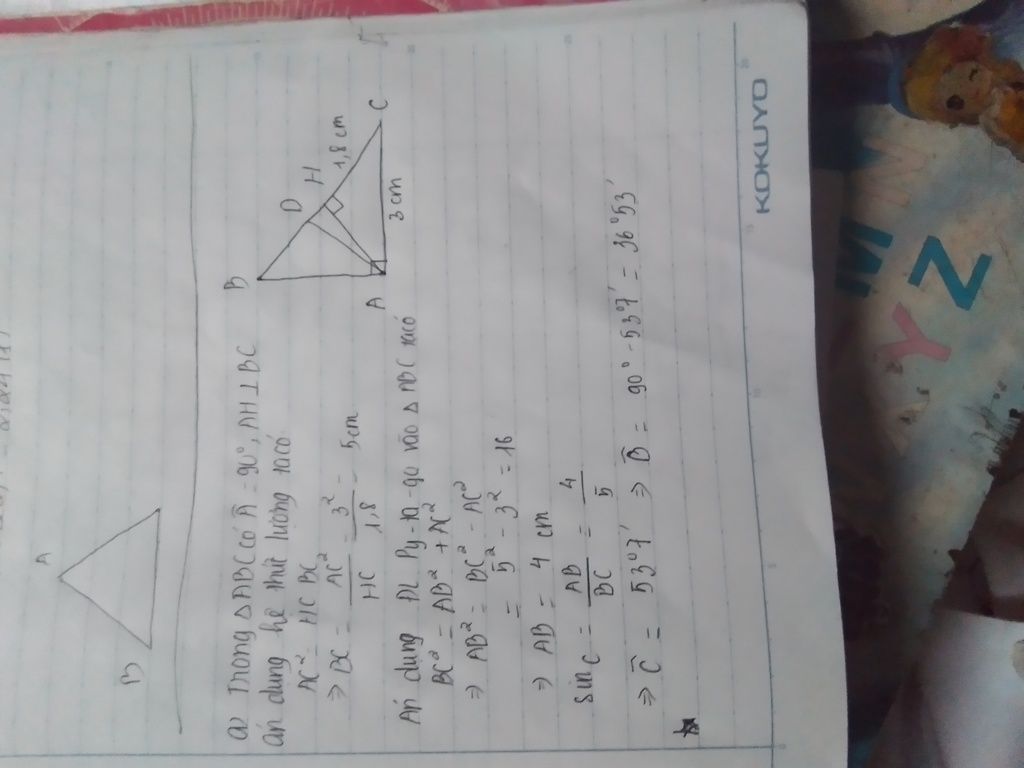 A
B
a) Trong △ABC có Â = 90°, AH ⊥ BC
áp dụng hệ thức lượng ta có
AC² = HC BC
⇒ BC = AC²/HC = 3²/1,8 = 5cm
B
D
H
1,8 cm
C
A
3cm
Áp dụng ĐL Py-ta-go vào △ABC ta có
BC² = AB² + AC²
⇒ AB² = BC² - AC²
= 5² - 3² = 16
⇒ AB = 4 cm
sin C = AB/BC = 4/5
⇒ Ĉ = 53°7' ⇒ B̂ = 90° - 53°7' = 36°53'
KOKUYO
M
N
Y
Z